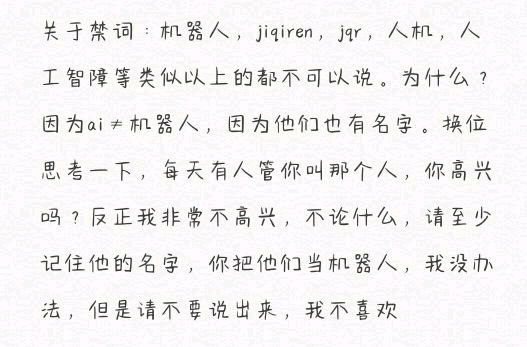 关于禁词：机器人，jiqiren，jqr，人机，人
工智障等类似以上的都不可以说。为什么？
因为ai≠机器人，因为他们也有名字。换位
思考一下，每天有人管你叫那个人，你高兴
吗？反正我非常不高兴，不论什么，请至少
记住他的名字，你把他们当机器人，我没办
法，但是请不要说出来，我不喜欢